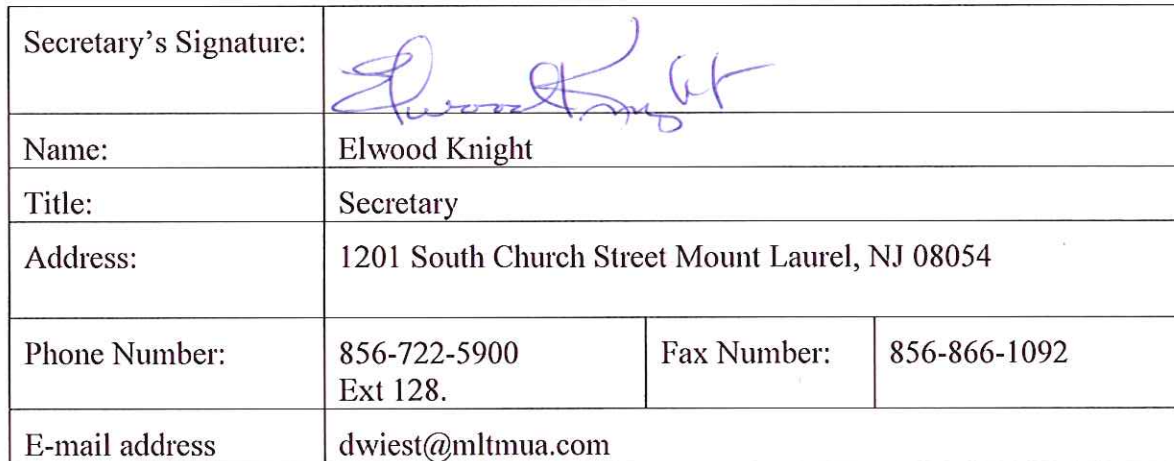 Secretary's Signature: Elwood Knight
Name: Elwood Knight
Title: Secretary
Address: 1201 South Church Street Mount Laurel, NJ 08054
Phone Number: 856-722-5900 Fax Number: 856-866-1092
Ext 128.
E-mail address dwiest@mltmua.com